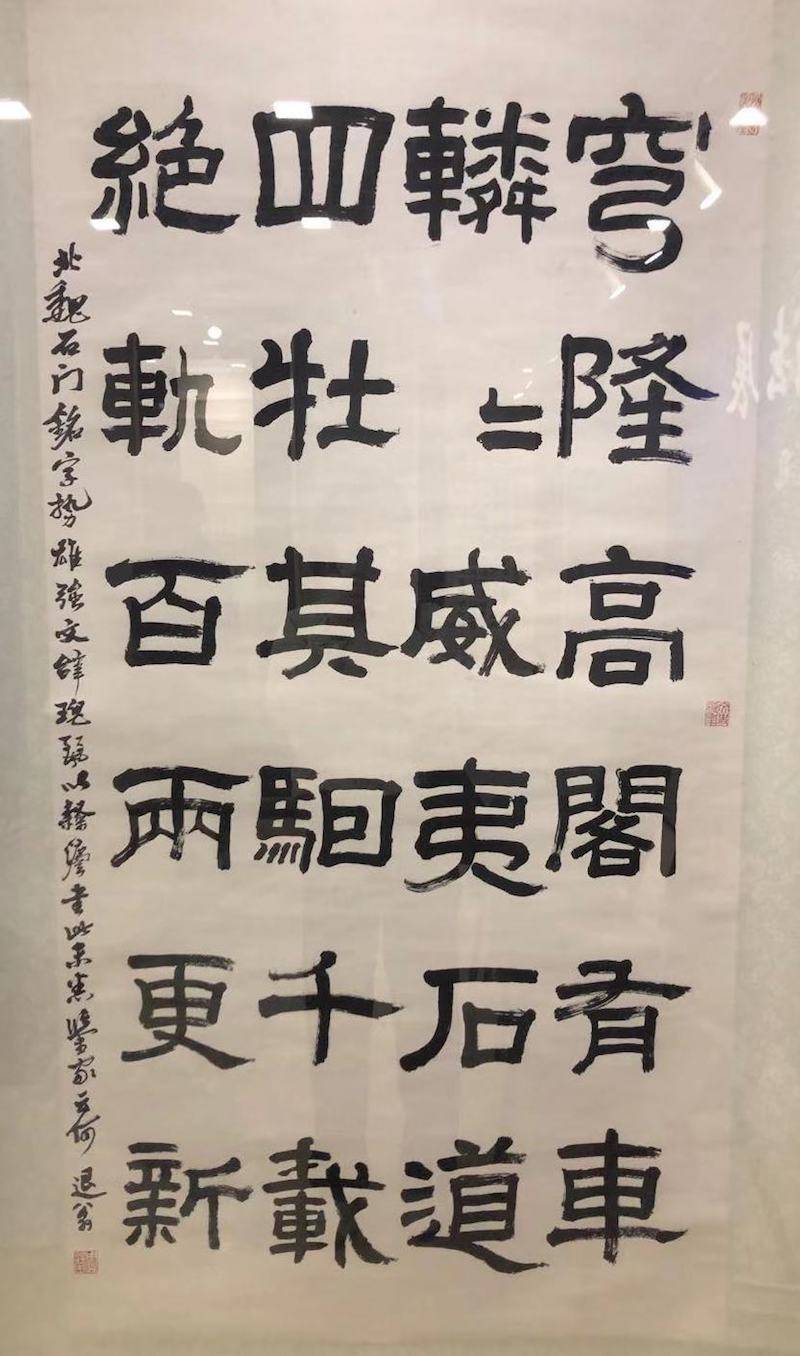 穹隆高閣有車
轔〻威夷石道
四牡其駉千載
絕軌百兩更新
北魏石门銘字势雄强文辞瑰麗以隸灋書此未悉鑒家云何 退翁